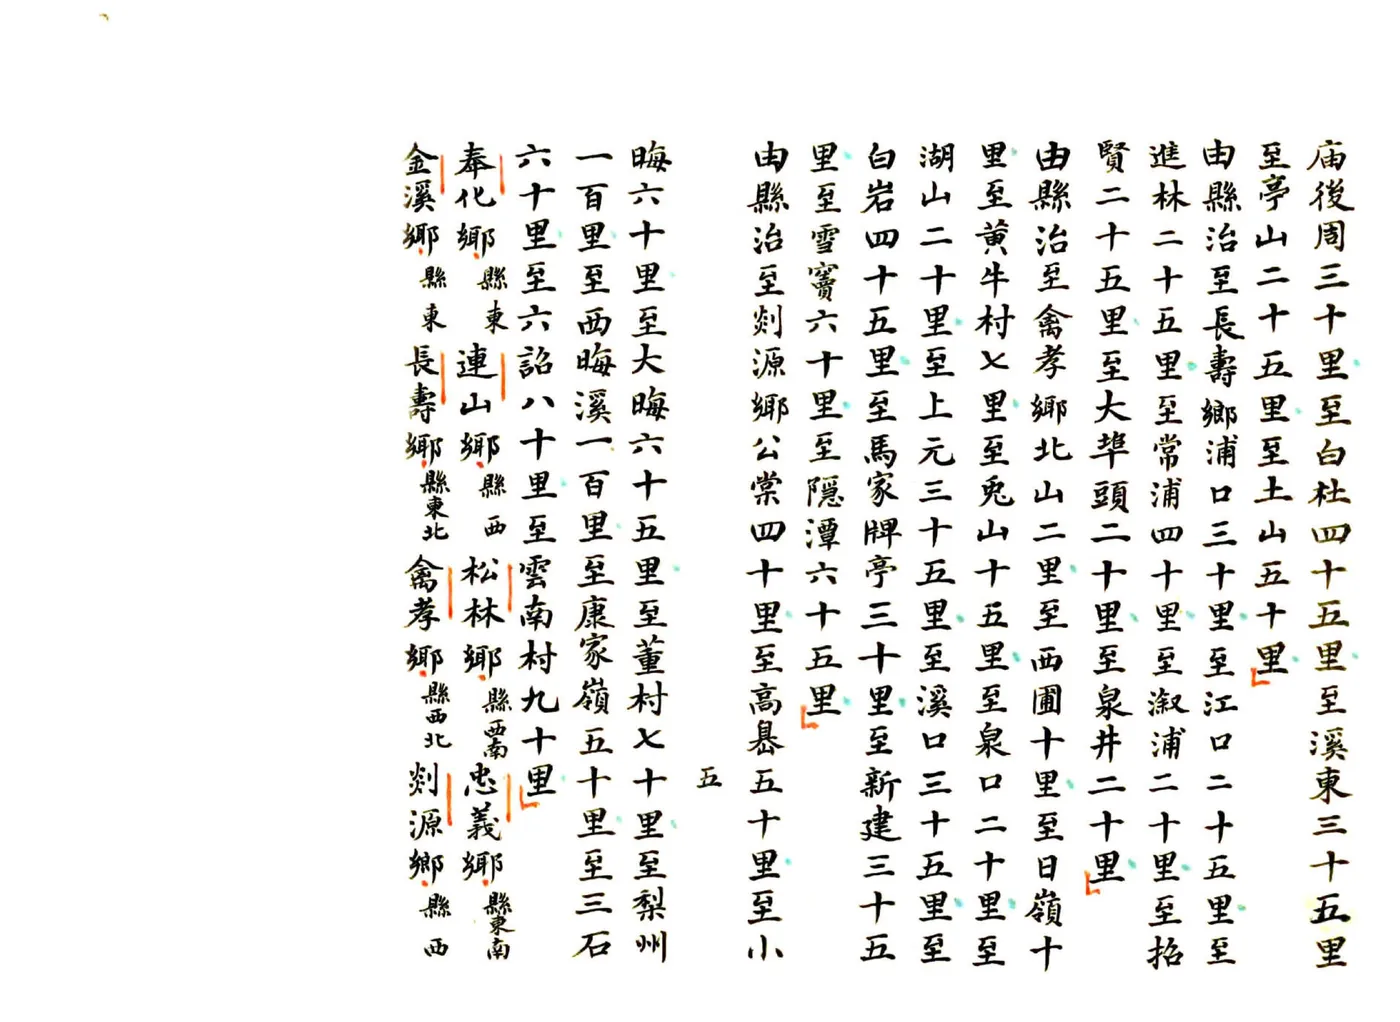 庙後周三十里至白杜四十五里至溪東三十五里
至亭山二十五里至土山五十里
由縣治至長壽鄉浦口三十里至江口二十五里至
進林二十五里至常浦四十里至溆浦二十里至招
賢二十五里至大埠頭二十里至泉井二十里
由縣治至禽孝鄉北山二里至西圃十里至日嶺十
里至黄牛村七里至兎山十五里至泉口二十里至
湖山二十里至上元三十五里至溪口三十五里至
白岩四十五里至馬家牌亭三十里至新建三十五
里至雪竇六十里至隠潭六十五里
由縣治至剡源鄉公棠四十里至高嵒五十里至小
五
晦六十里至大晦六十五里至董村七十里至梨州
一百里至西晦溪一百里至康家嶺五十里至三石
六十里至六詔八十里至雲南村九十里
奉化鄉縣東 連山鄉縣西 松林鄉縣西南 忠義鄉縣東南
金溪鄉縣東 長壽鄉縣東北 禽孝鄉縣西北 剡源鄉縣西